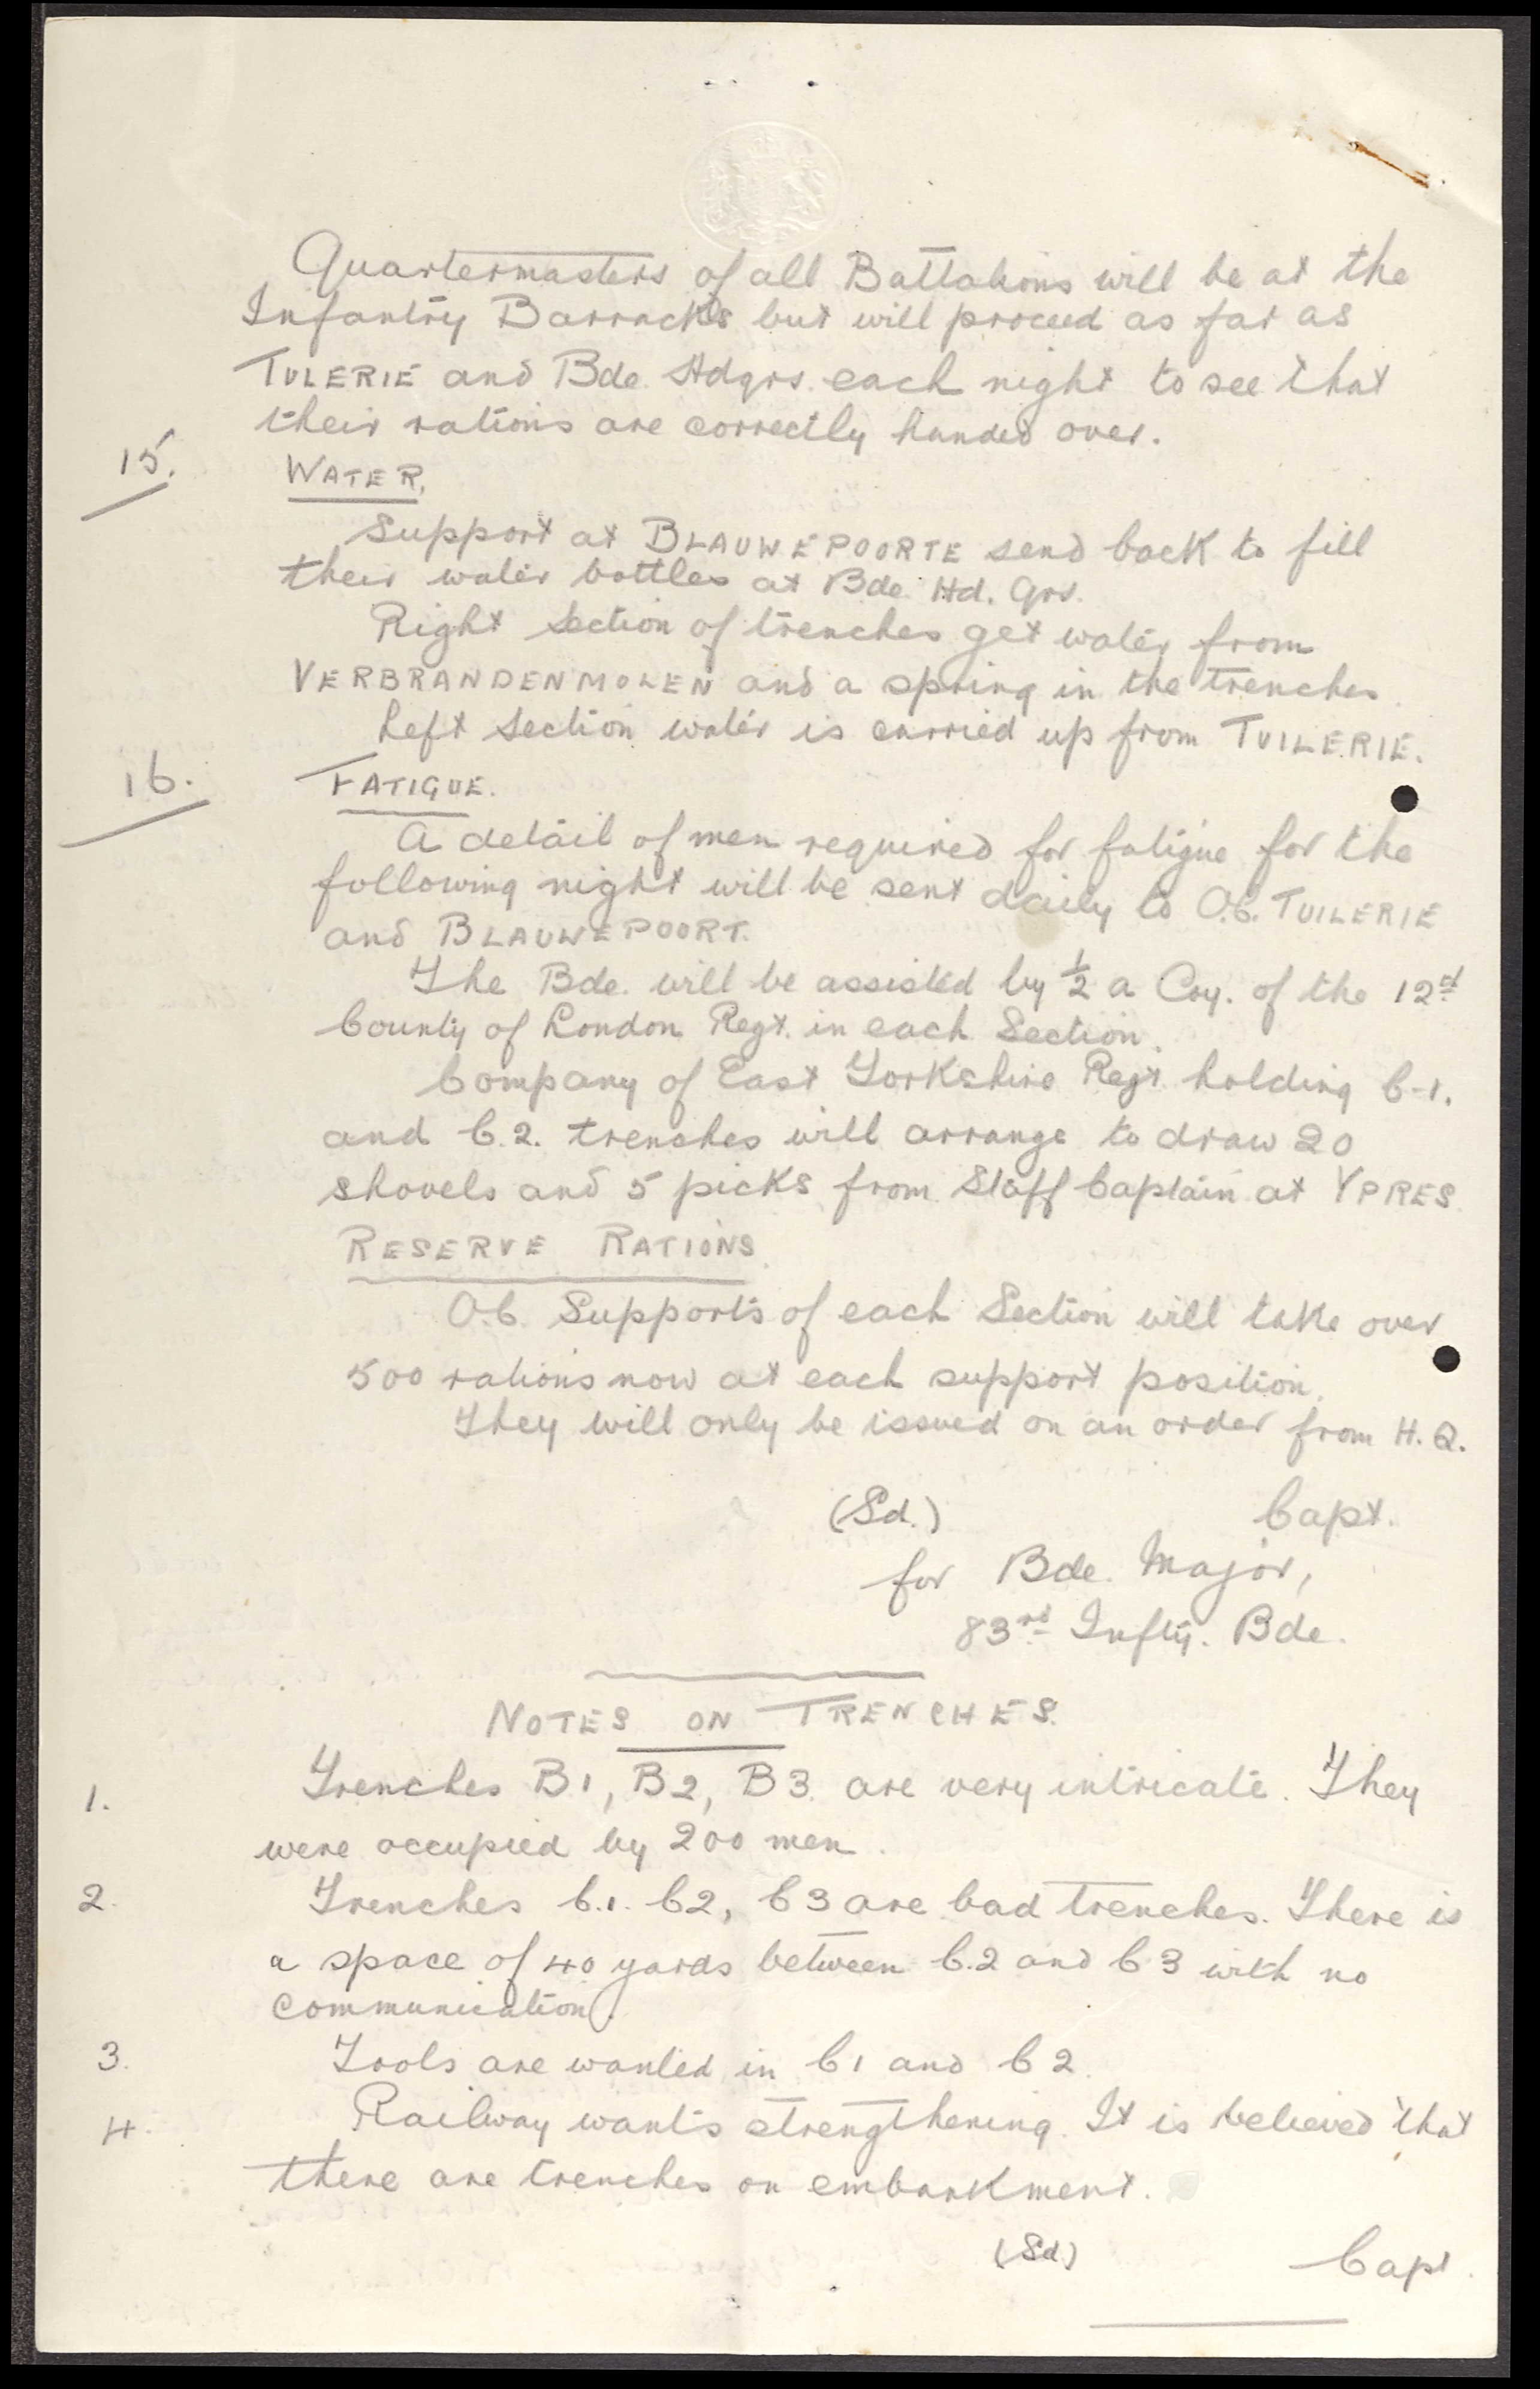 Quartermasters of all Battalions will be at the
Infantry Barracks but will proceed as far as
TULERIE and Bde. Hdqrs. each night to see that
their rations are correctly handed over.
15. WATER.
Support at BLAUWEPOORTE send back to fill
their water bottles at Bde. Hd. Qrs.
Right Section of trenches get water from
VERBRANDENMOLEN and a spring in the trenches.
Left Section water is carried up from TUILERIE.
16. FATIGUE.
A detail of men required for fatigue for the
following night will be sent daily to O.C. TUILERIE
and BLAUWEPOORT.
The Bde. will be assisted by ½ a Coy. of the 12th
County of London Regt. in each Section.
Company of East Yorkshire Regt. holding C-1.
and C.2. trenches will arrange to draw 20
shovels and 5 picks from Staff Captain at YPRES.
RESERVE RATIONS.
O.C. Supports of each Section will take over
500 rations now at each support position.
They will only be issued on an order from H.Q.
(Sd.) Capt.
for Bde. Major,
83rd Infty. Bde.
NOTES ON TRENCHES.
1. Trenches B1, B2, B3. are very intricate. They
were occupied by 200 men.
2. Trenches C.1. C2, C3 are bad trenches. There is
a space of 40 yards between C.2 and C3 with no
communication.
3. Tools are wanted in C1 and C2.
4. Railway wants strengthening. It is believed that
there are trenches on embankment.
(Sd) Capt.